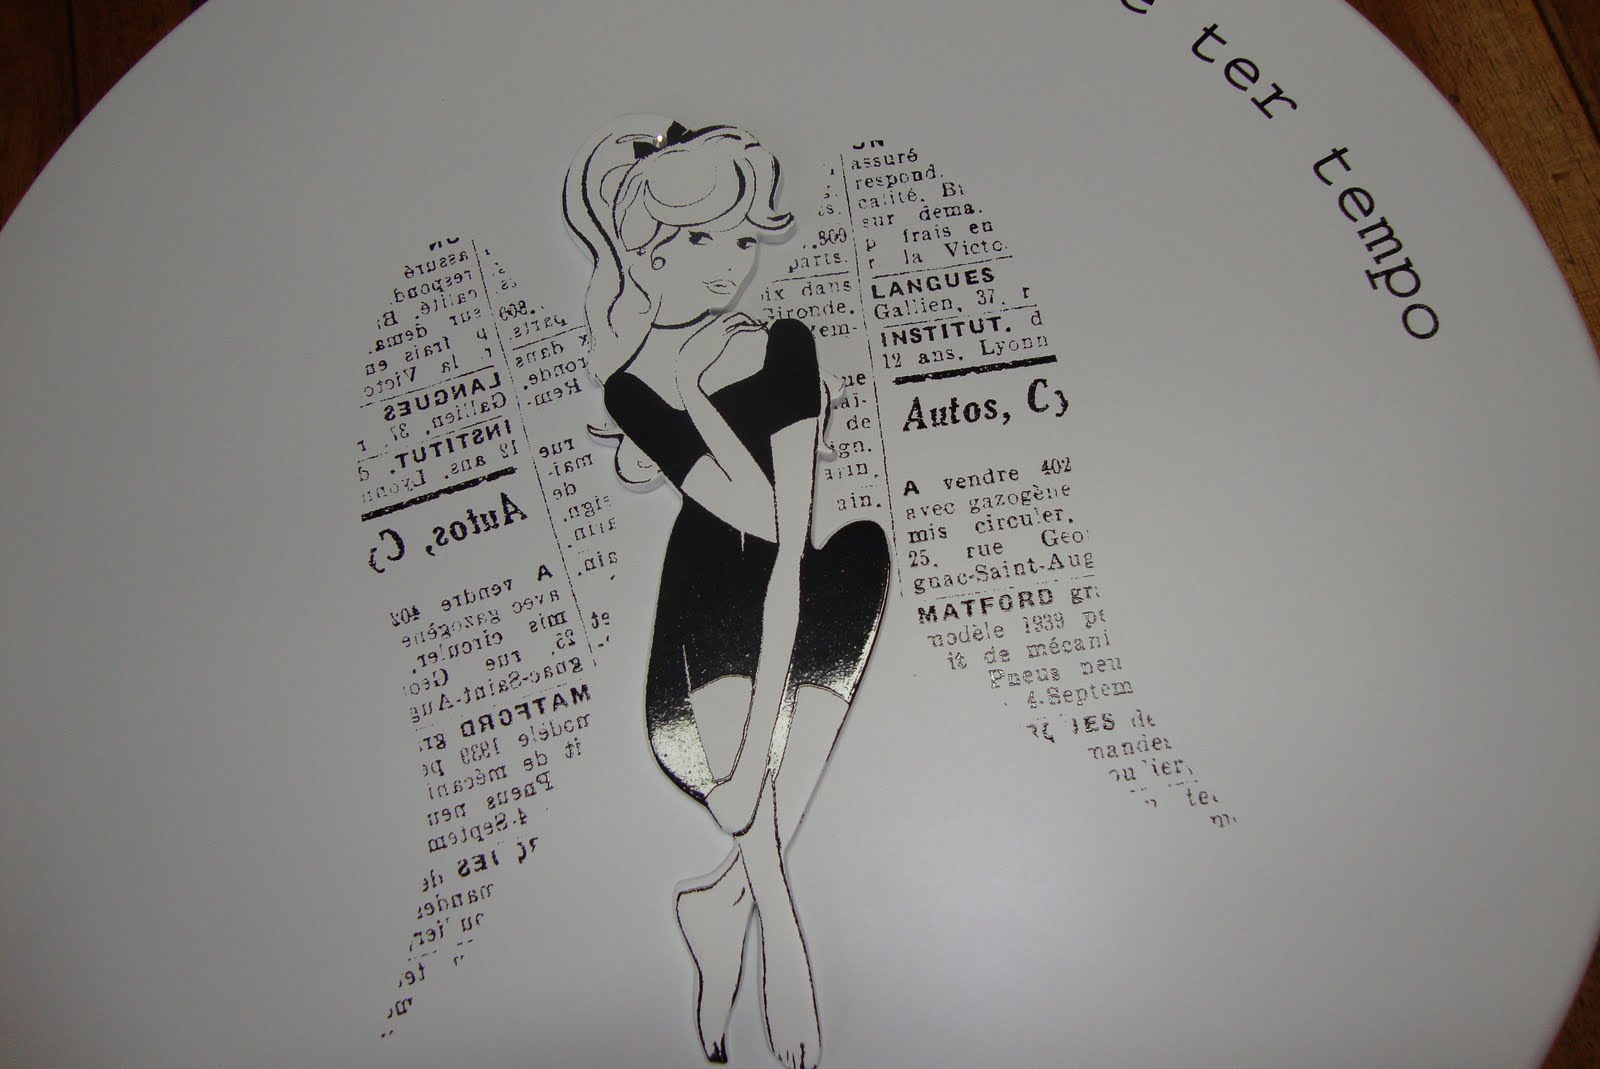 e ter tempo
UN
assuré
respond.
calité. B
sur dema.
p frais en
r la Victo
LANGUES
Gallien, 37. r
INSTITUT. d
12 ans. Lyonn
Autos, Cy
A vendre 402
avec gazogène
mis circuler.
25. rue Geo
gnac-Saint-Aug
MATFORD gr
modèle 1939 pe
it de mécani
Pneus neu
4-Septem
IES de
mandez
ou
te
.800
parts.
ix dans
Gironde.
Rem-
que
mai-
de
ign.
arin.
ain.
UN
assuré
respond.
calité. B
sur dema.
p frais en
r la Victo
LANGUES
Gallien, 37. r
INSTITUT. d
12 ans. Lyonn
Autos, Cy
A vendre 402
avec gazogène
mis circuler.
25. rue Geo
gnac-Saint-Aug
MATFORD gr
modèle 1939 pe
it de mécani
Pneus neu
4-Septem
IES de
mandez
ou
te
.800
parts.
x dans
ronde.
Rem-
rue
mai-
de
eign.
arin
ain.
et